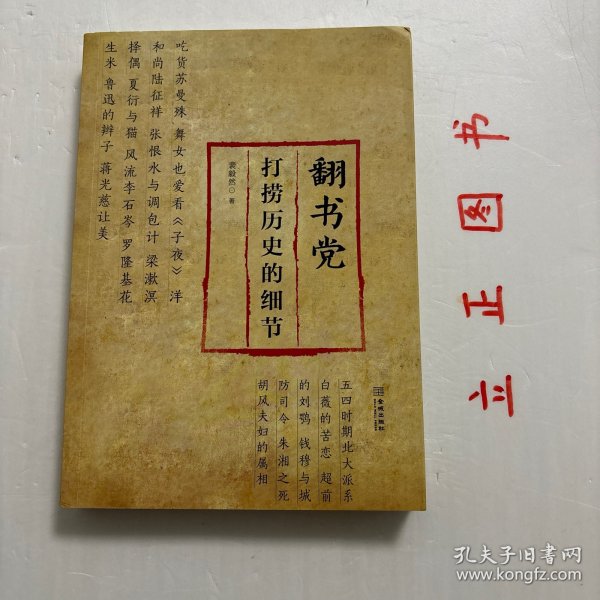 翻书党
打捞历史的细节
裴毅然⊙著
吃货苏曼殊 舞女也爱看《子夜》 洋
和尚陆征祥 张恨水与调包计 梁漱溟
择偶 夏衍与猫 风流李石岑 罗隆基花
生米 鲁迅的辫子 蒋光慈让美
五四时期北大派系
白薇的苦恋 超前
的刘鹗 钱穆与城
防司令 朱湘之死
胡风夫妇的属相
金城出版社
立正图书
孔夫子旧书网
www.kongfz.com